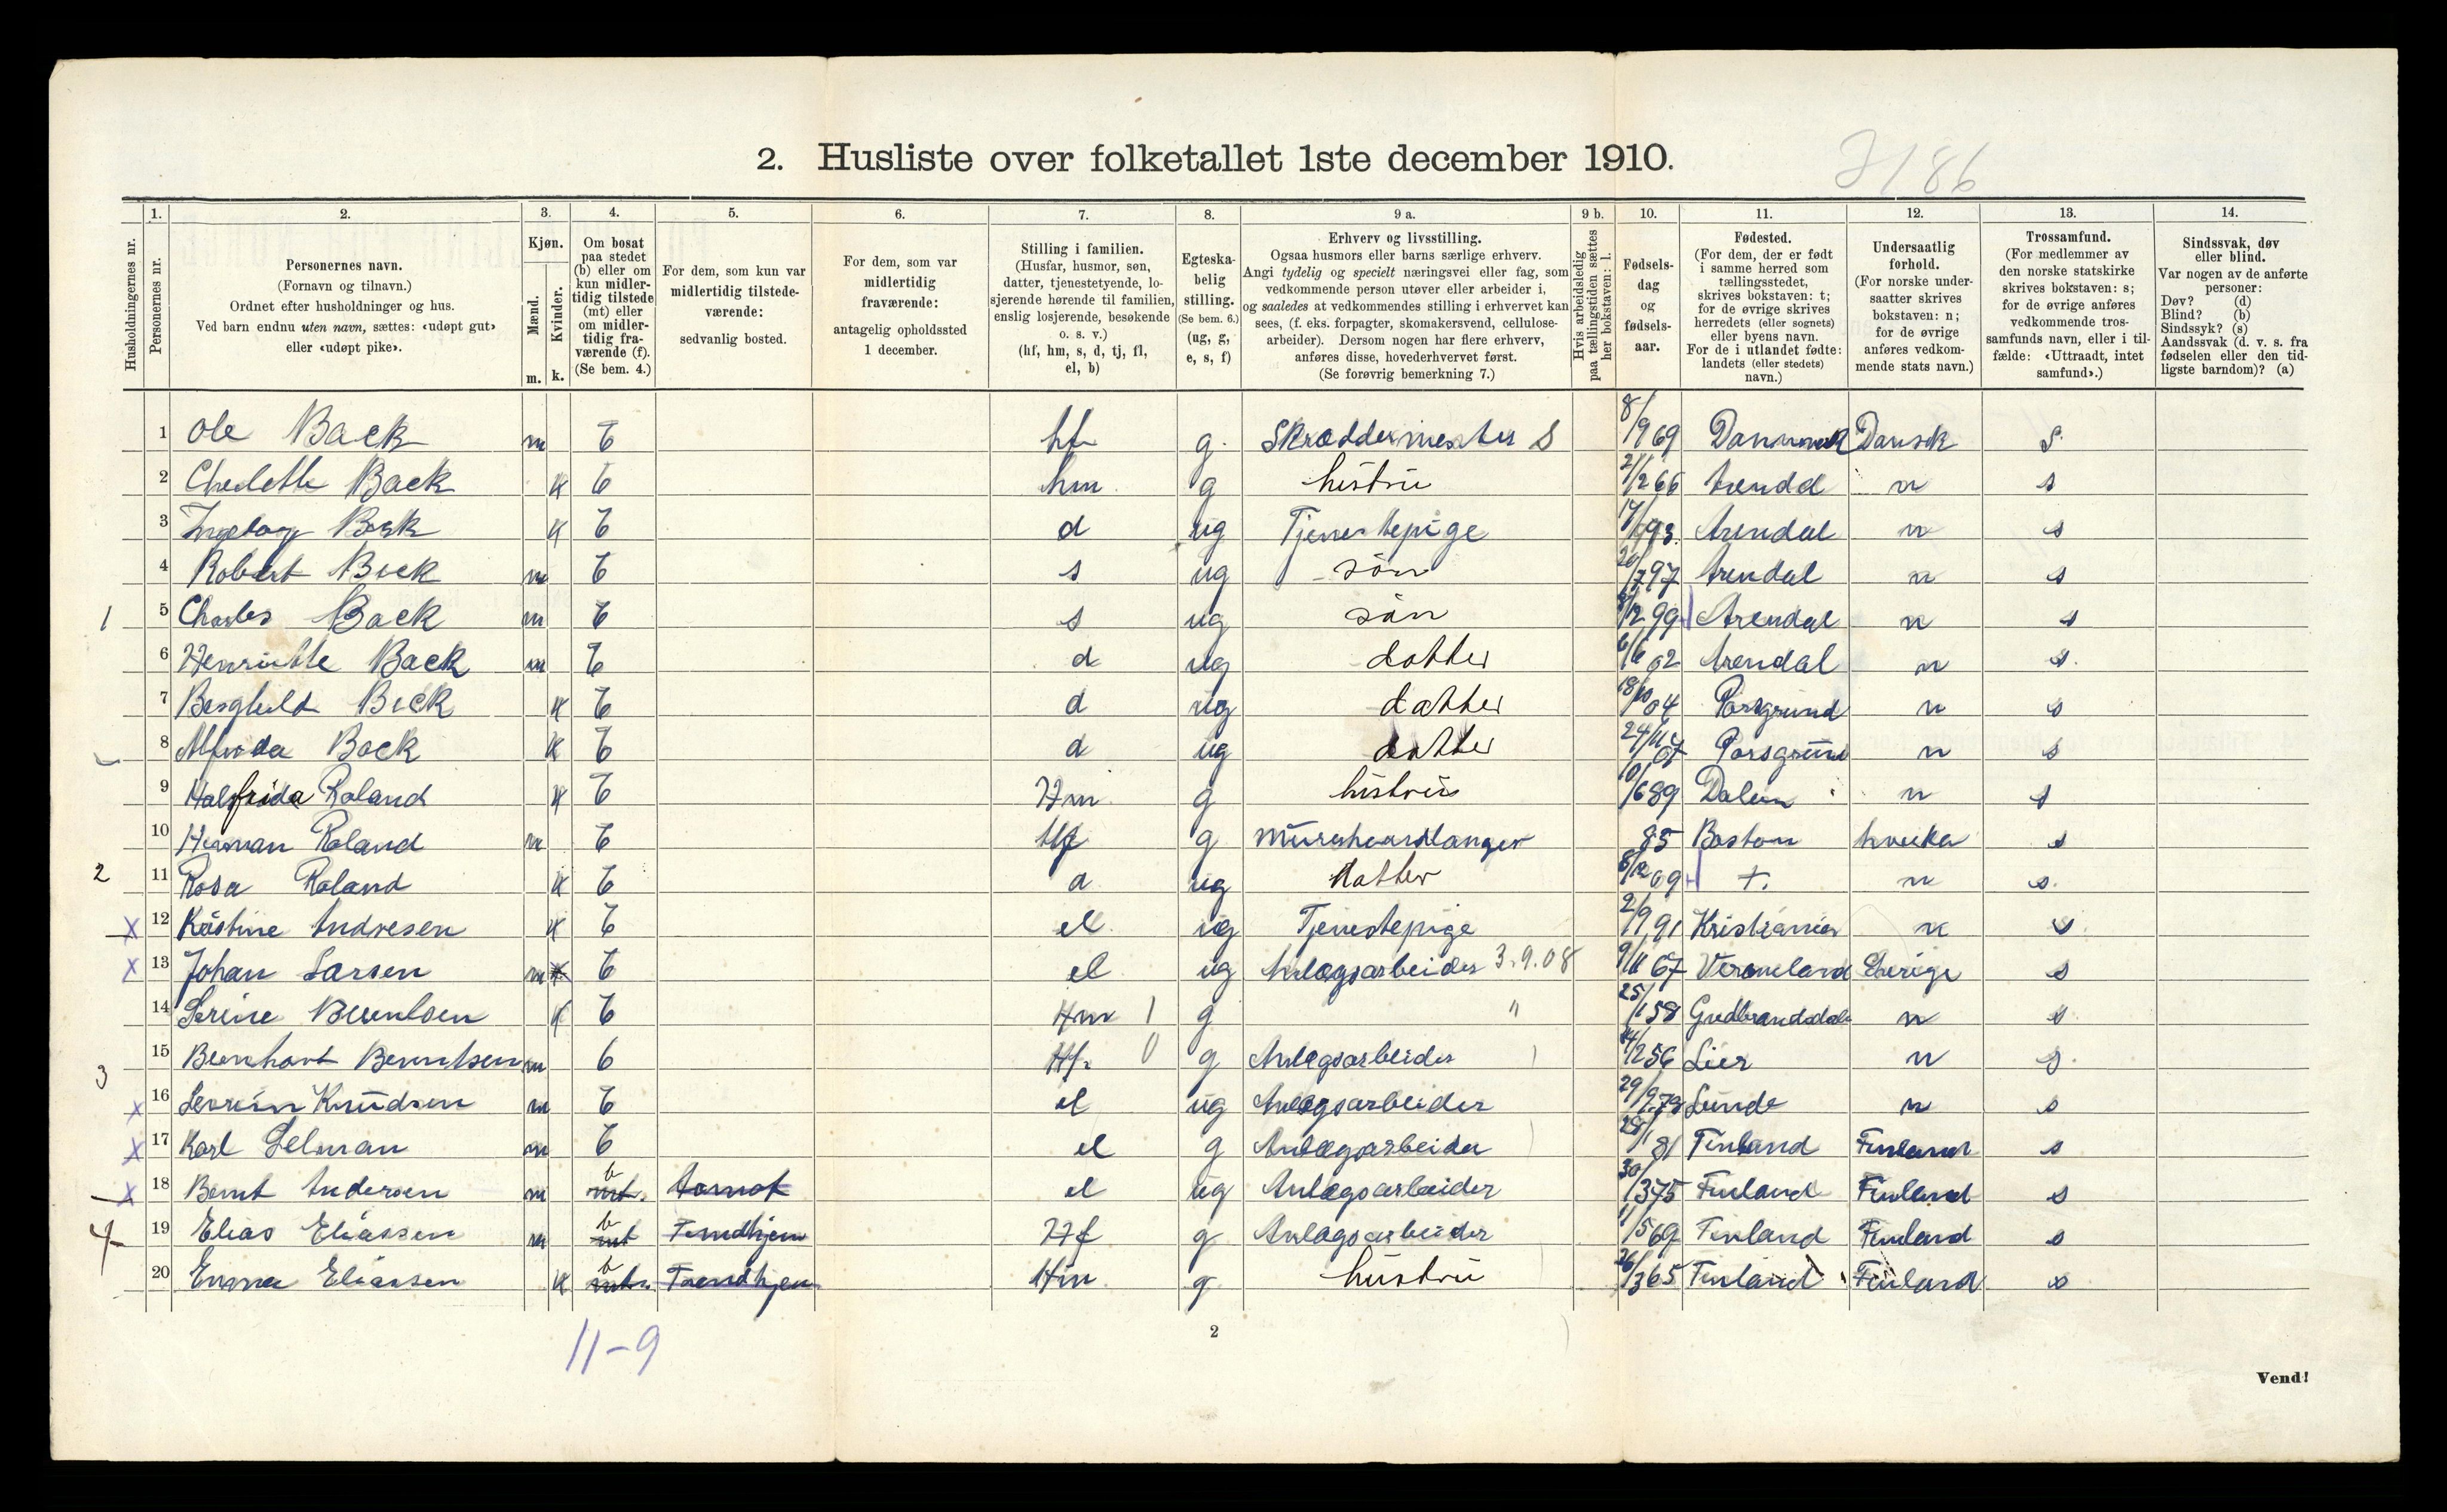 2. Husliste over folketallet 1ste december 1910.
7186
Husholdningernes nr.
1. Personernes nr.
2. Personernes navn. (Fornavn og tilnavn.) Ordnet efter husholdninger og hus. Ved barn endnu uten navn, sættes: «udøpt gut» eller «udøpt pike».
3. Kjøn. Mænd. m. Kvinder. k.
4. Om bosat paa stedet (b) eller om kun midlertidig tilstede (mt) eller om midlertidig fraværende (f). (Se bem. 4.)
5. For dem, som kun var midlertidig tilstedeværende: sedvanlig bosted.
6. For dem, som var midlertidig fraværende: antagelig opholdssted 1 december.
7. Stilling i familien. (Husfar, husmor, søn, datter, tjenestetyende, losjerende hørende til familien, enslig losjerende, besøkende o. s. v.) (hf, hm, s, d, tj, fl, el, b)
8. Egteskabelig stilling. (Se bem. 6.) (ug, g, e, s, f)
9 a. Erhverv og livsstilling. Ogsaa husmors eller barns særlige erhverv. Angi tydelig og specielt næringsvei eller fag, som vedkommende person utøver eller arbeider i, og saaledes at vedkommendes stilling i erhvervet kan sees, (f. eks. forpagter, skomakersvend, cellulosearbeider). Dersom nogen har flere erhverv, anføres disse, hovederhvervet først. (Se forøvrig bemerkning 7.)
9 b. Hvis arbeidsledig paa tællingstiden sættes her bokstaven: l.
10. Fødselsdag og fødselsaar.
11. Fødested. (For dem, der er født i samme herred som tællingsstedet, skrives bokstaven: t; for de øvrige skrives herredets (eller sognets) eller byens navn. For de i utlandet fødte: landets (eller stedets) navn.)
12. Undersaatlig forhold. (For norske undersaatter skrives bokstaven: n; for de øvrige anføres vedkommende stats navn.)
13. Trossamfund. (For medlemmer av den norske statskirke skrives bokstaven: s; for de øvrige anføres vedkommende trossamfunds navn, eller i tilfælde: «Uttraadt, intet samfund».)
14. Sindssvak, døv eller blind. Var nogen av de anførte personer: Døv? (d) Blind? (b) Sindssyk? (s) Aandssvak (d. v. s. fra fødselen eller den tidligste barndom)? (a)
1 Ole Back m b hf g. Skræddermester S 8/9 69 Danmark Dansk S
2 Back k b hm g hustru 21/2 66 Arendal n s
3 Ingeborg Back k b d ug Tjenestepige 93. Arendal n s
4 Robert Back m b s ug søn 20/7 97 Arendal n s
1 5 Charles Back m b s ug søn /12 99 Arendal n s
6 Henriette Back m b d ug datter 6/6 02 Arendal n s.
7 Borghild Back k b d ug datter 18/10 04 Porsgrund n s
8 Back k b d ug datter 24/11 07 Porsgrund n s
9 Halfrida Roland k b Hm g hustru 10/6 89 Dalen n s
10 Herman Roland m b Hf g 85 Boston s
2 11 Rosa Roland k b d ug datter 8/12 09 t. n s.
x 12 Kristine Andresen k b el ug Tjenestepige 2/9 91 Kristiania n s
x 13 Johan Larsen m b el ug Anlægsarbeider 3.9.08 9/11 67 Vermeland Sverige s
14 Serine Berentsen k b Hm 1 g " 25/1 58 Gudbrandsdal n s
3 15 Bernhart Berntsen m b Hf. 0 g Anlegsarbeider 14/2 56 Lier n s.
x 16 Severin Knudsen m b el ug Anlægsarbeider 29/9 78 Lunde n s
x 17 Karl Selman m b el g Anlægsarbeider 28/1 81 Finland Finland s
x 18 Bernt Andersen m mt. b el ug Anlægsarbeider 30/3 75 Finland Finland s
4 19 Elias Eliassen m mt b Trondhjem Hf g Anlægsarbeider 11/5 69 Finland Finland s
20 Emma Eliassen k mt. b Trondhjem Hm g hustru 26/3 65 Finland Finland s
11-9
2
Vend!